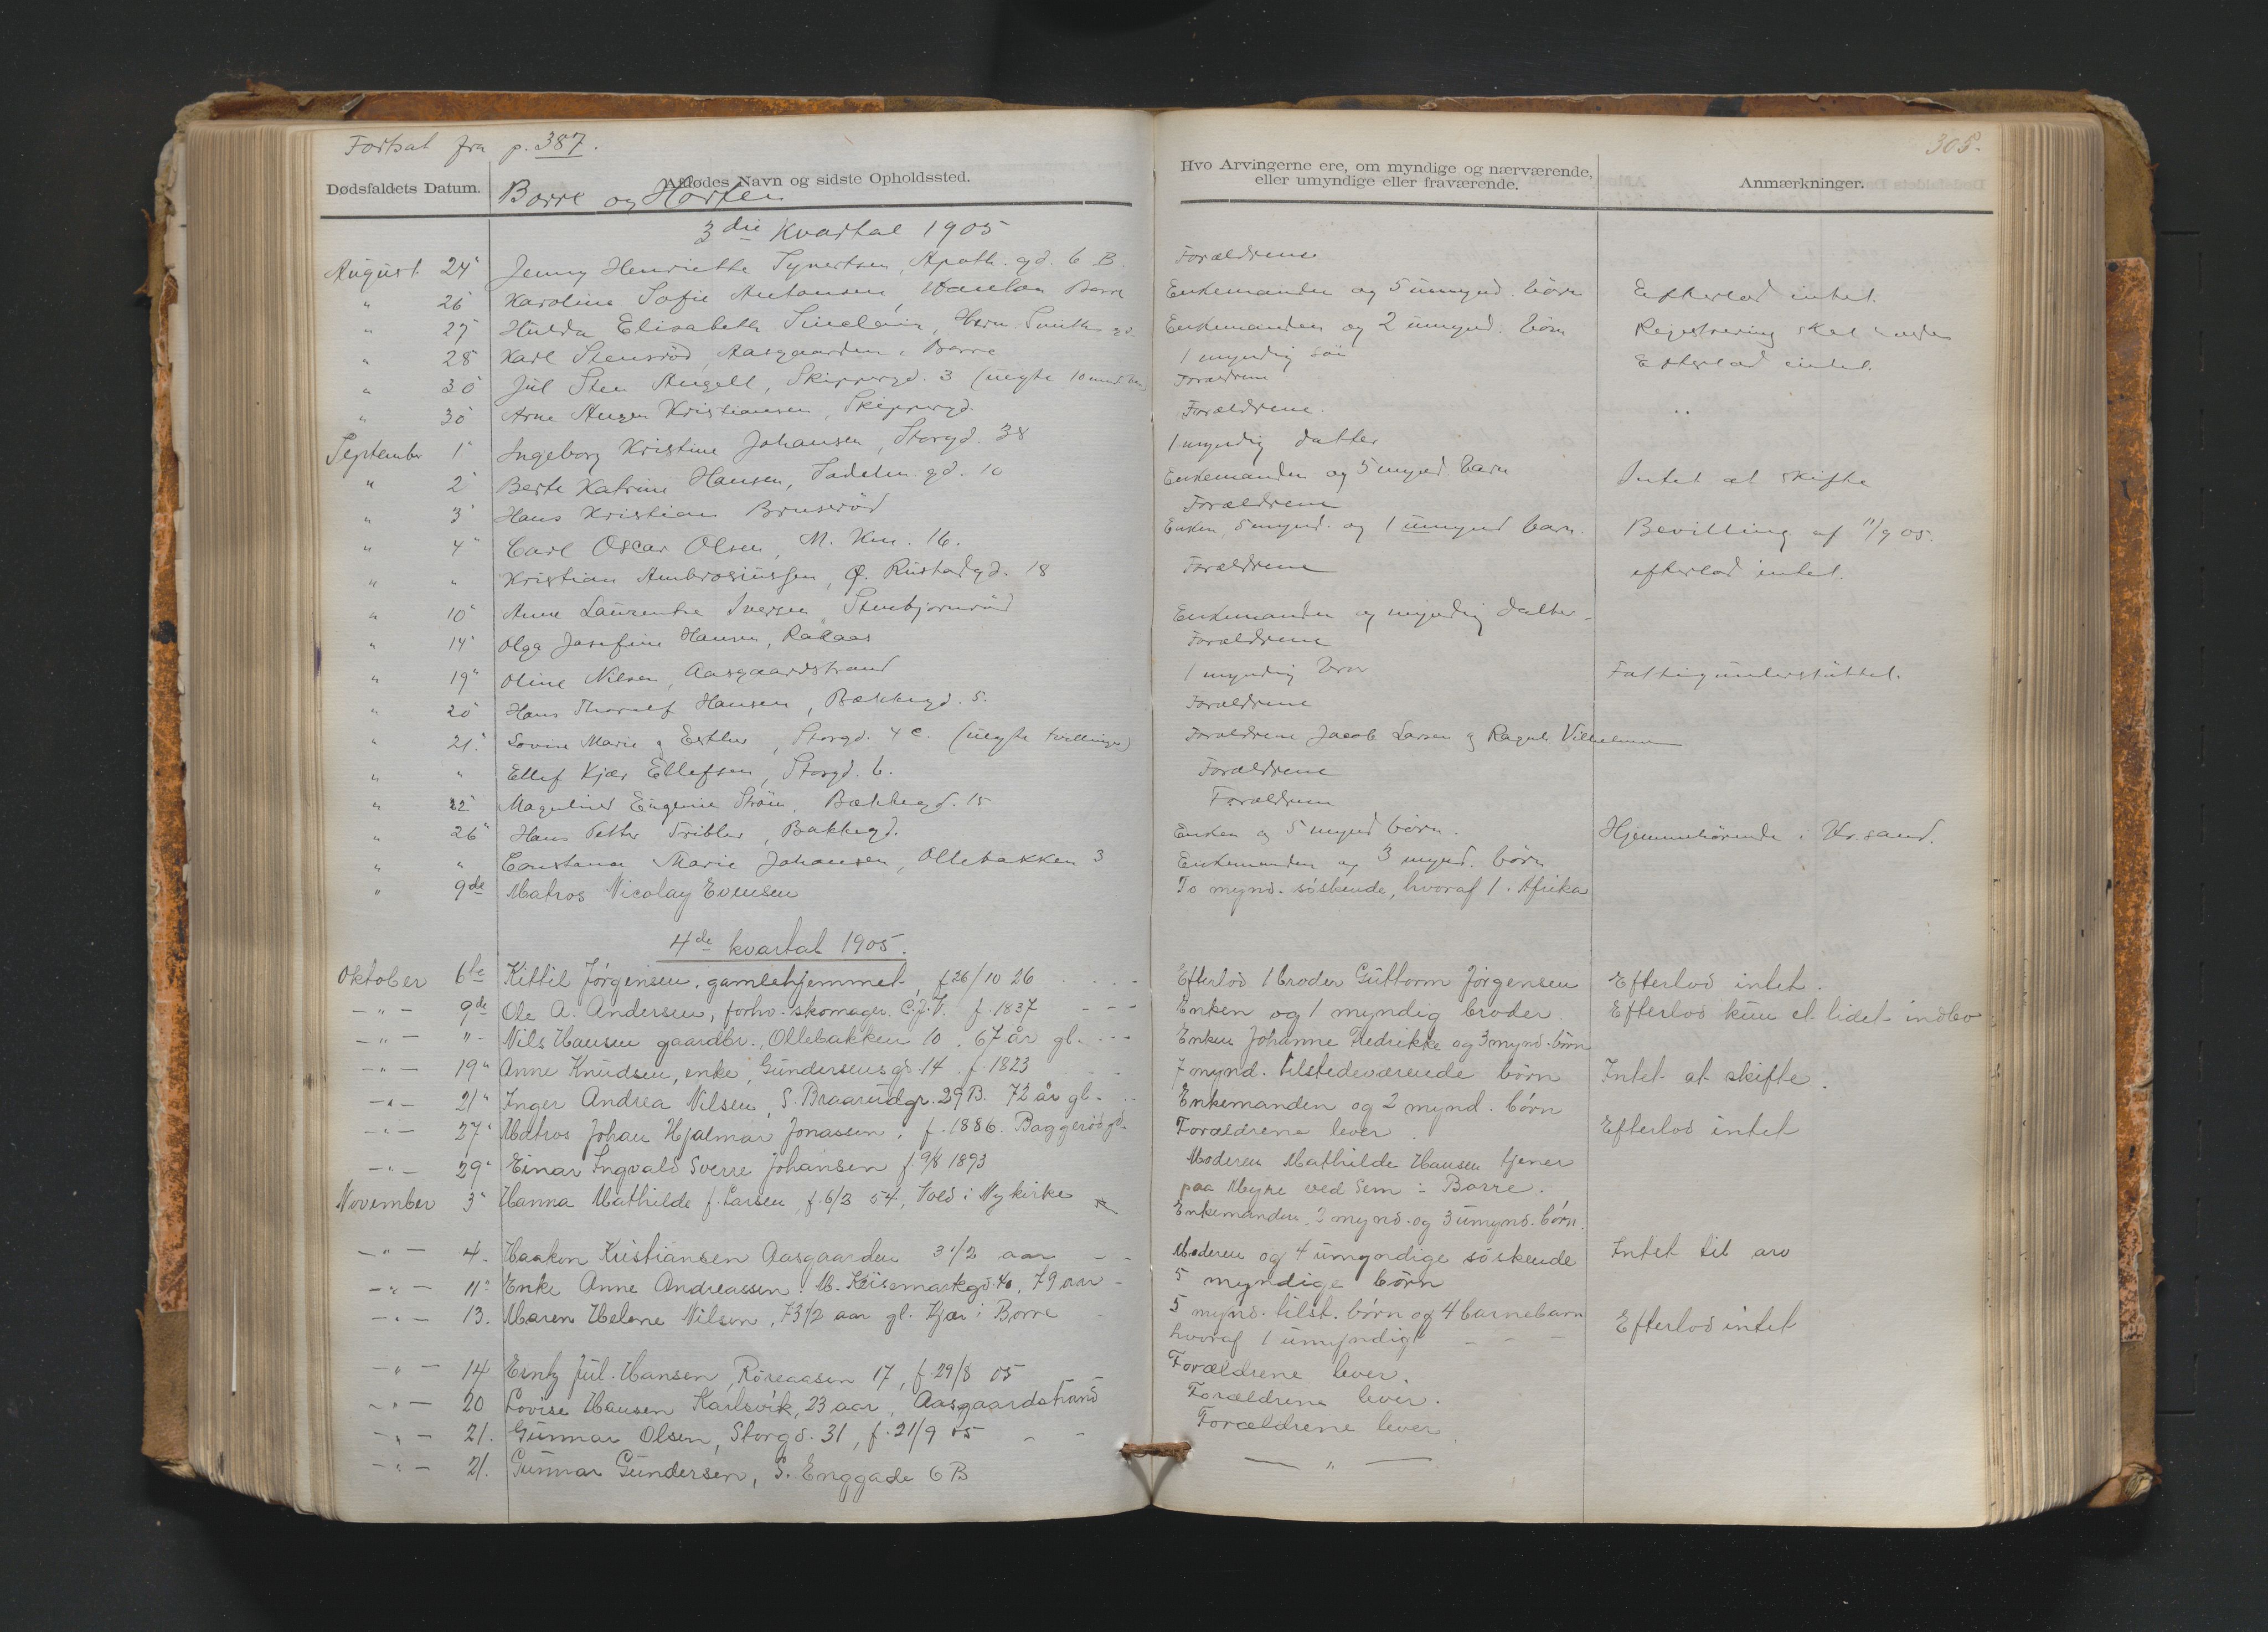 Fortsat fra p. 387.
305.
Dødsfaldets Datum.
Afdødes Navn og sidste Opholdssted.
Borre og Horten
Hvo Arvingerne ere, om myndige og nærværende, eller umyndige eller fraværende.
Anmærkninger.
3die Kvartal 1905
August 24" Jenny Henriette Syvertsen, Apoth. gd. 6 B. Forældrene
" 26 Karoline Sofie Antonsen, Borre Enkemanden og 5 umynd. börn Efterlod intet.
" 27" Hulda Elisabeth Sinclair, Enkemanden og 2 umynd. börn Registrering skal
" 28 Karl Stensröd, Aasgaarden i Borre 1 myndig sön Efterlod intet.
" 30 Jul Sten Angell, Skippergd. 3 (uegte 10 Forældrene
" 30 Arne Kristiansen, Skippergd. Forældrene. "
September 1" Ingeborg Kristine Johansen, Storgd. 38 1 myndig datter
" 2 Berte Katrine Hansen, gd. 10 Enkemanden og 5 mynd barn Intet at skifte
" 3 Hans Kristian Brunseröd Forældrene
" 4" Carl Oscar Olsen, M. Kru. 16. Enken, 5 mynd. og 1 umynd barn. Bevilling af 11/9 05.
" " Kristian Ambrosiussen, Ø. Rustadgd. 18 Forældrene efterlod intet.
" 10" Anne Laurentse Iversen Stenbjornröd Enkemanden og myndig datter.
" 14" Olga Josefine Hansen, Rakaas Forældrene
" 19" Oline Nilsen, Aasgaardstrand 1 myndig bror Fattigunderstüttet.
" 20 Hans Thoralf Hansen, Bækkegd. 5. Forældrene
" 21. Lovise Marie & Esther, Storgd. 4 c. (uegte tvillinger) Forældrene Jacob Larsen & Ragnh. Vilhelmsen
" " Ellef Kjær Ellefsen, Storgd. 6. Forældrene
" 22" Eugenie Ström, Bækkegd. 15 Forældrene
" 26" Hans Petter Tribler, Bakkegd. Enken og 5 mynd börn. Hjemmehörende i Kr.sand.
" " Constance Marie Johansen, Ollebakken 3 Enkemanden og 3 mynd. börn
" 9de Matros Nicolay Evensen To mynd. söskende, hvoraf 1 i Afrika
4de kvartal 1905.
Oktober 6te Kittil Jörgensen, gamlehjemmet, f 26/10 26 Efterlod 1 broder Guttorm Jörgensen Efterlod intet.
- " - 9de Ole A. Andersen, forhv. skomager. C.J.V. f. 1837 Enken og 1 myndig broder. Efterlod kun et lidet indbo
- " - " - Nils Hansen gaardbr., Ollebakken 10, 67 år gl. Enken Johanne Fredrikke og 3 mynd. börn
- " - 19" Anne Knudsen, enke, Gundersensgd. 14. f. 1823 7 mynd. tilstedeværende börn Intet at skifte.
- " - 21" Inger Andrea Nilsen, S. Braarudgr. 29 B. 72 år gl. Enkemanden og 2 mynd. börn
- " - 27" Matros Johan Hjalmar Jonassen, f. 1886. Baggerödgd. Forældrene lever. Efterlod intet
- " - 29" Einar Ingvald Sverre Johansen f. 9/8 1893 Moderen Mathilde Hansen tjener
paa Myhre ved Sem i Borre.
November 3" Hanna Mathilde f. Larsen, f. 6/3 54, Vold i Nykirke Enkemanden, 2 mynd. og 3 umynd. börn.
- " - 4. Haakon Kristiansen Aasgaarden 3 1/2 aar Moderen og 4 umyndige söskende Intet til arv
- " - 11" Enke Anne Andreassen, M. 79 aar 5 myndige börn
- " - 13. Maren Helene Nilsen, 73 1/2 aar gl. Kjær i Borre 5 mynd. tilst. börn og 4 barnebarn Efterlod intet
hvoraf 1 umyndigt
- " - 14 Jul. Hansen, Röreaasen 17, f. 29/8 05 Forældrene lever.
- " - 20 Lovise Hansen Karlsvik, 23 aar, Aasgaardstrand Forældrene lever.
- " - 21. Gunnar Olsen, Storgd. 31, f. 21/9 05 Forældrene lever
- " - 21. Gunnar Gundersen, S. Enggade 6 B — " —